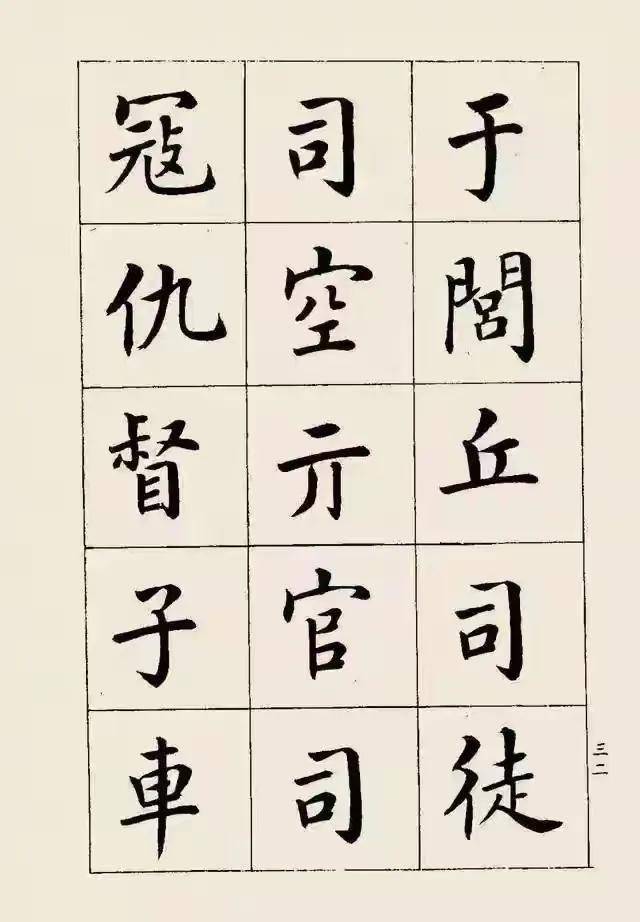 于閭丘司徒
司空亓官司
冦仇督子車
三二